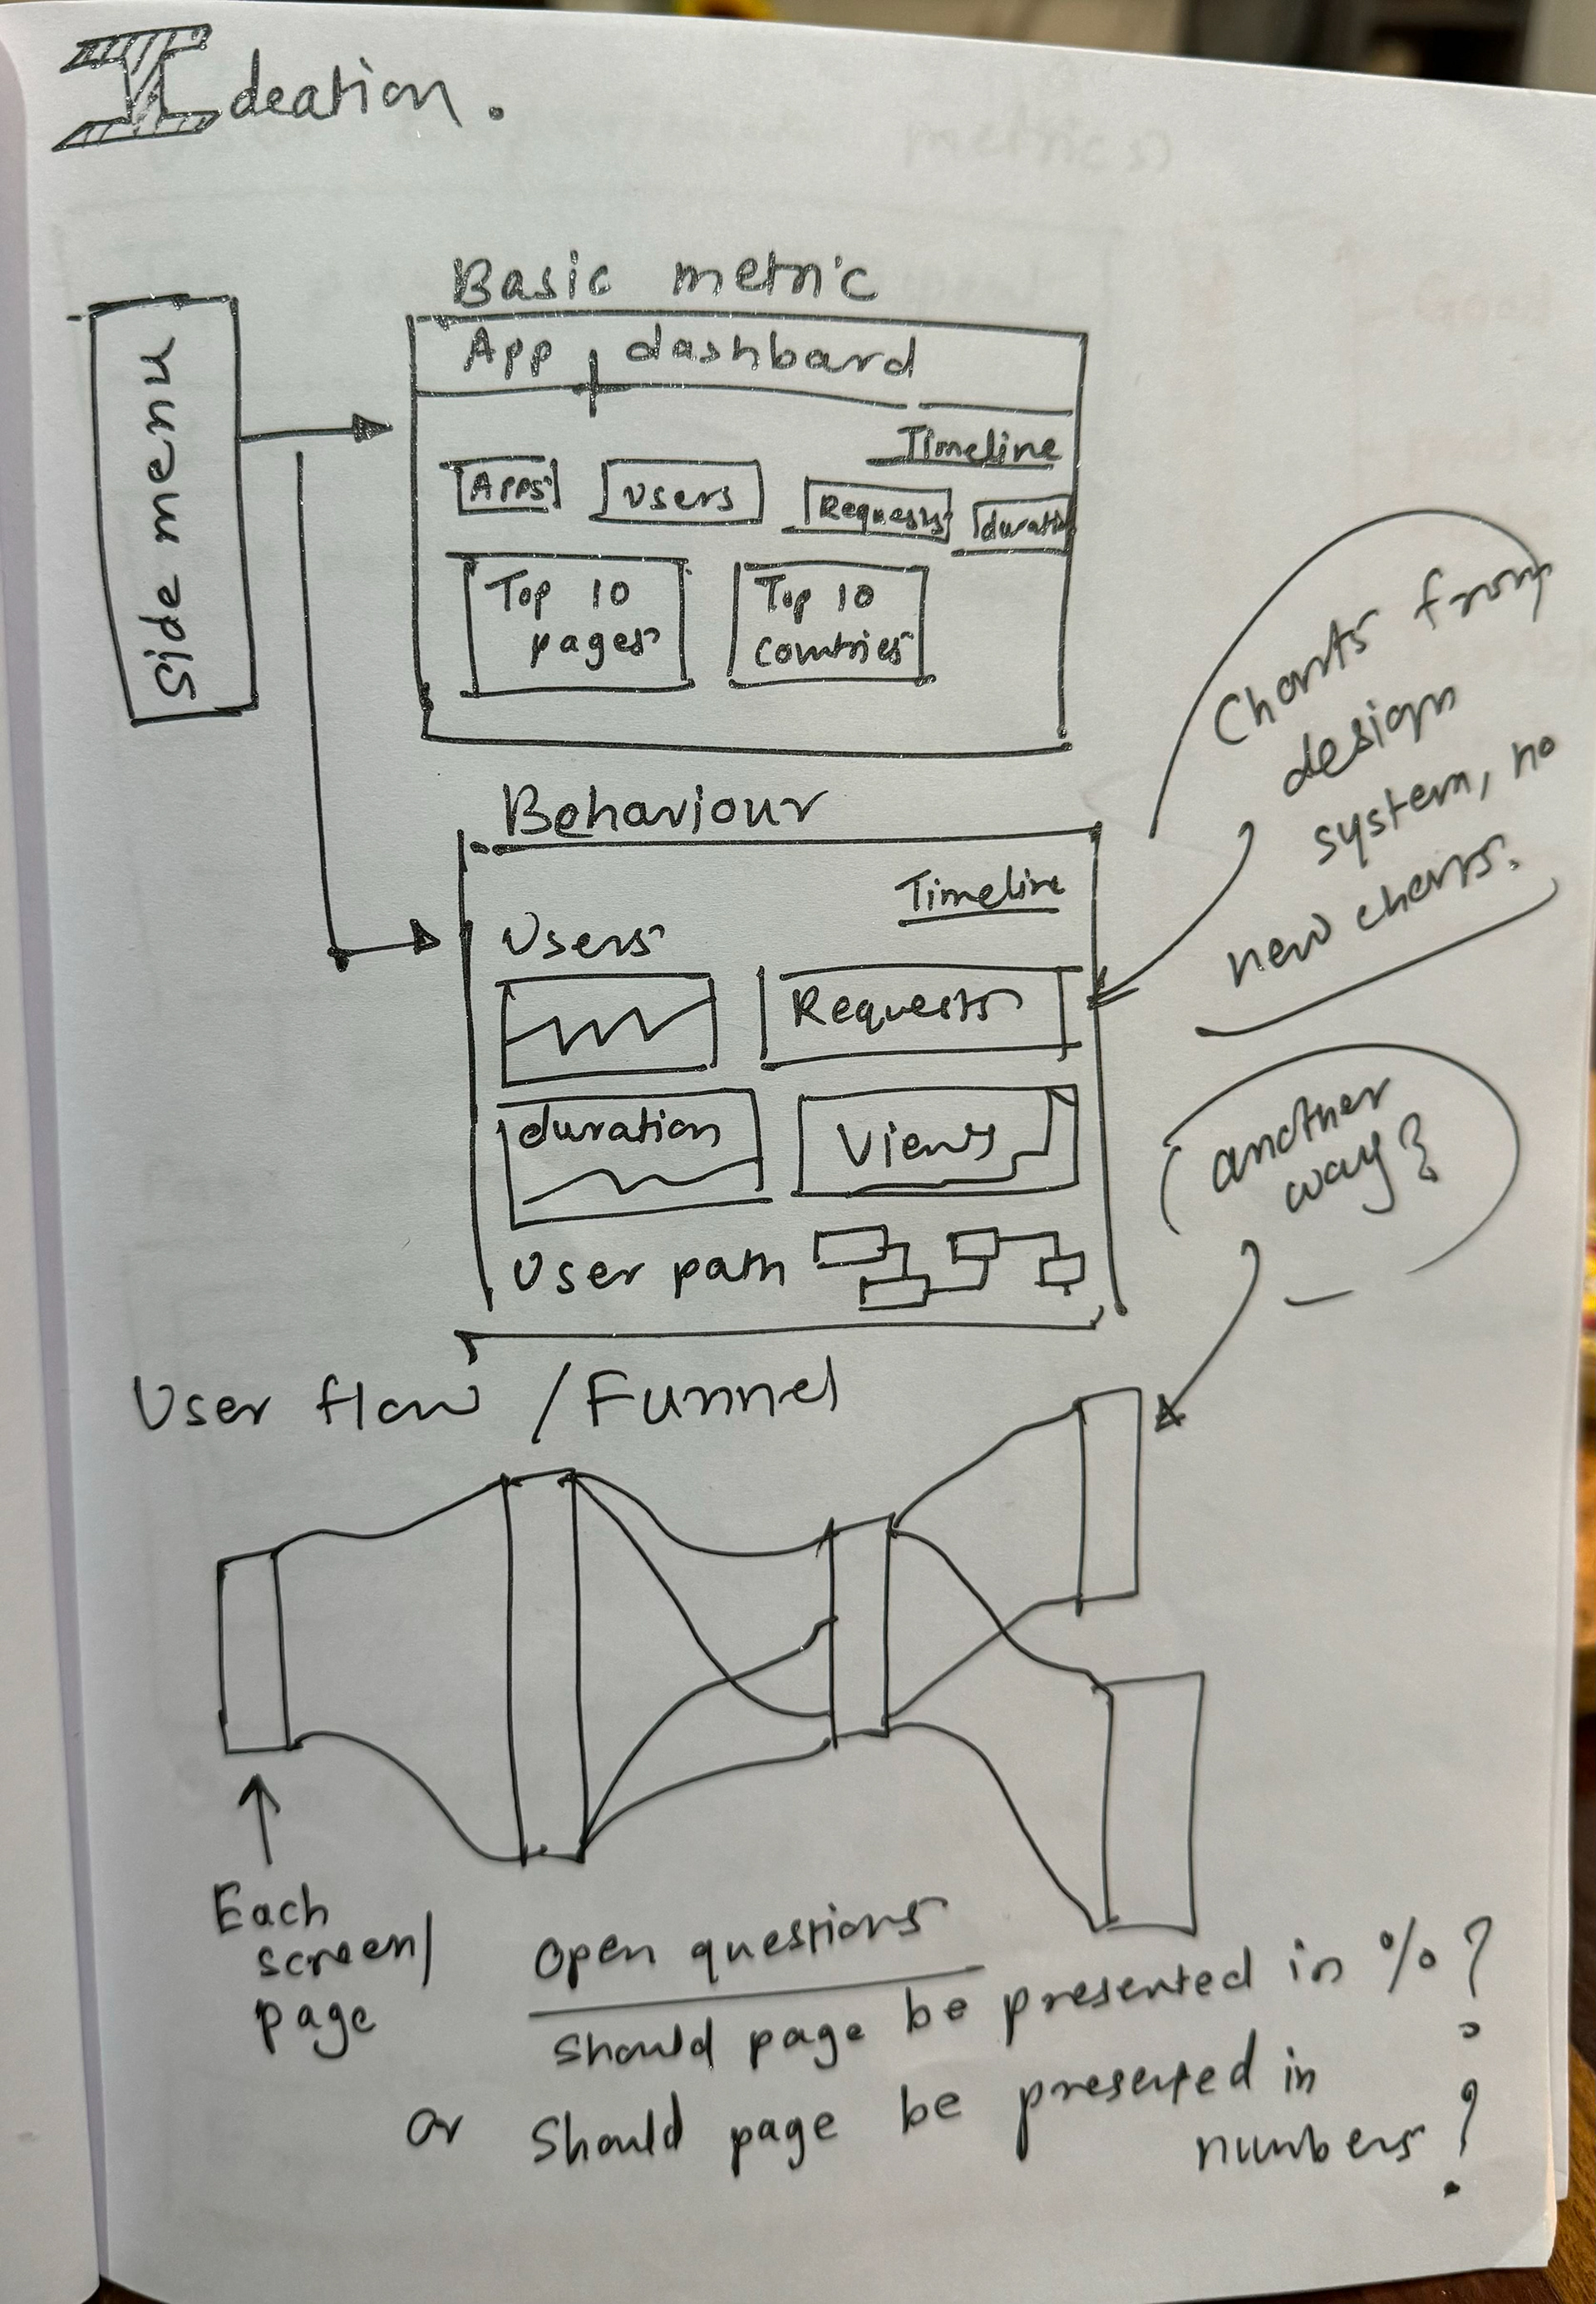 Ideation.
Basic metric
side menu
App dashboard
Timeline
Apps
Users
Requests
duratio
Top 10
pages
Top 10
countries
Charts from
design
system, no
new charts.
Behaviour
Timeline
Users
Requests
duration
Views
User path
another
way?
User flow / Funnel
Each
screen/
page
Open questions
Should page be presented in % ?
or Should page be presented in
numbers ?
metrics